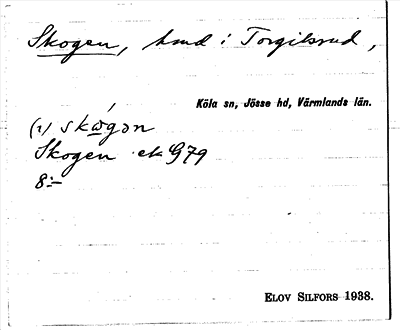 Skogen, hmd i Torgilsrud,
Köla sn, Jösse hd, Värmlands län.
(1) skógən
Skogen ek G79
8:-
ELOV SILFORS 1938.